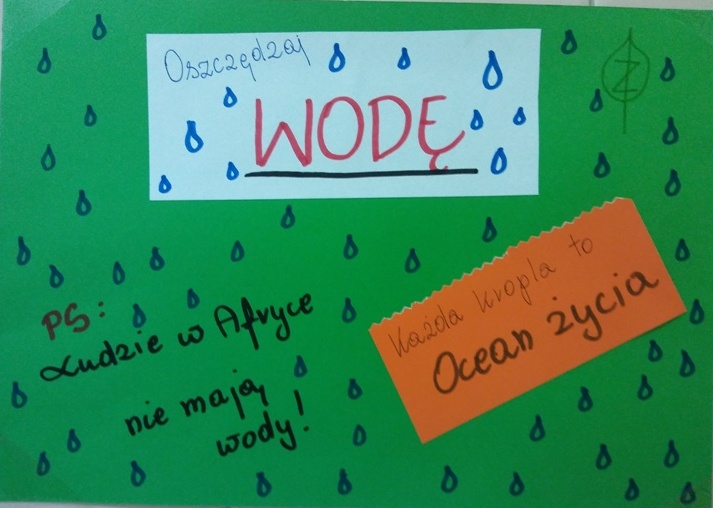 Oszczędzaj
WODĘ
Z
PS:
Ludzie w Afryce
nie mają
wody!
Każda kropla to
Ocean życia